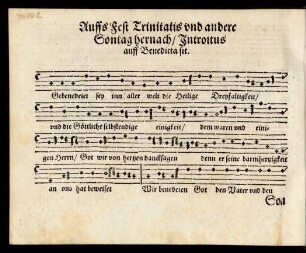 Auffs Fest Trinitatis vnd andere
Sontag hernach/ Introitus
auff Benedicta sit.
Gebenedeiet sey inn aller welt die Heilige Dreyfaltigkeit/
vnd die Göttliche selbstendige einigkeit/ dem waren vnd eini-
gen Herrn/ Got wir von hertzen dancksagen denn er seine barmhertzigkeit
an vns hat beweiset Wir benedeien Got den Vater vnd den
Son